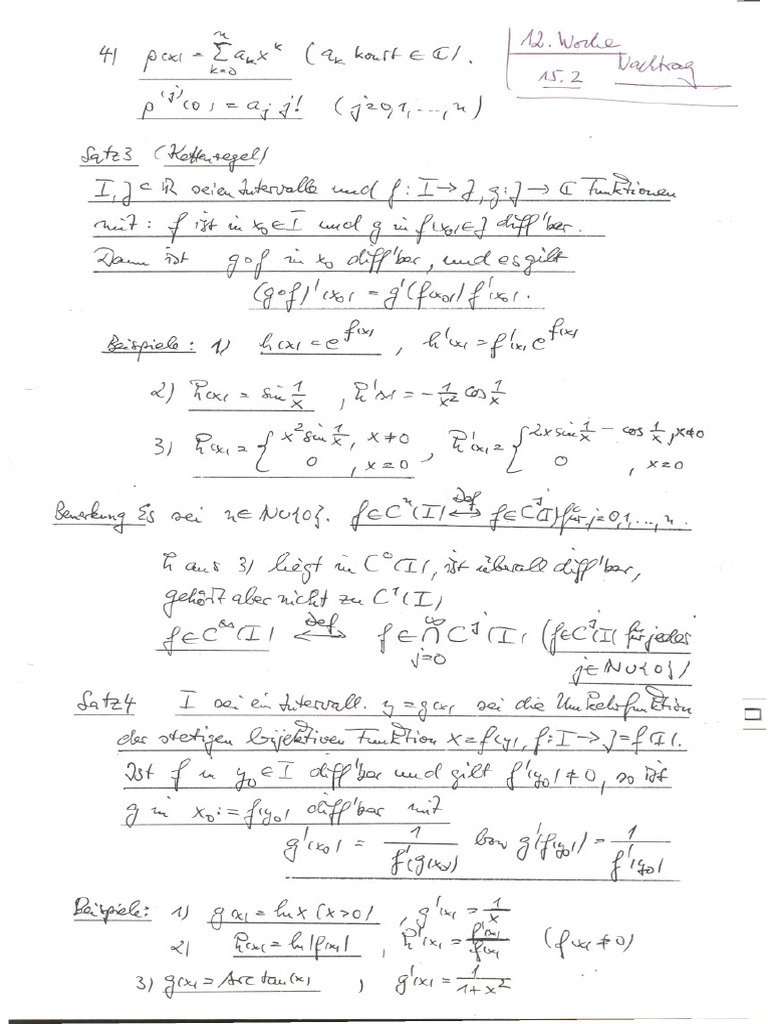 12. Woche
15.2 Nachtrag
4) p(x) = Σ_{k=0}^{n} a_k x^k (a_k konst ∈ ℂ).
p^{(j)}(0) = a_j j! (j=0,1,...,n)
Satz 3 (Kettenregel)
I, J ⊂ ℝ seien Intervalle und f: I → J, g: J → ℂ Funktionen
mit: f ist in x₀ ∈ I und g in f(x₀) ∈ J diff'bar.
Dann ist g∘f in x₀ diff'bar, und es gilt
(g∘f)'(x₀) = g'(f(x₀)) f'(x₀).
Beispiele: 1) h(x) = e^{f(x)}, h'(x) = f'(x) e^{f(x)}
2) h(x) = sin 1/x, h'(x) = - 1/x² cos 1/x
3) h(x) = { x² sin 1/x, x≠0 ; 0, x=0 , h'(x) = { 2x sin 1/x - cos 1/x, x≠0 ; 0, x=0
Bemerkung Es sei n ∈ ℕ∪{0}. f ∈ Cⁿ(I) ⟺ Def f ∈ C^j(I) für j=0,1,...,n.
h aus 3) liegt in C⁰(I), ist überall diff'bar,
gehört aber nicht zu C¹(I)
f ∈ C^∞(I) ⟺ Def f ∈ ⋂_{j=0}^{∞} C^j(I) (f ∈ C^j(I) für jedes
j ∈ ℕ∪{0})
Satz 4 I sei ein Intervall. y = g(x) sei die Umkehrfunktion
der stetigen bijektiven Funktion x = f(y), f: I → J = f(I).
Ist f in y₀ ∈ I diff'bar und gilt f'(y₀) ≠ 0, so ist
g in x₀ := f(y₀) diff'bar mit
g'(x₀) = 1/f'(g(x₀)) bzw g'(f(y₀)) = 1/f'(y₀)
Beispiele: 1) g(x) = ln x (x>0), g'(x) = 1/x
2) h(x) = ln|f(x)|, h'(x) = f'(x)/f(x) (f(x) ≠ 0)
3) g(x) = Arctan(x), g'(x) = 1/(1+x²)